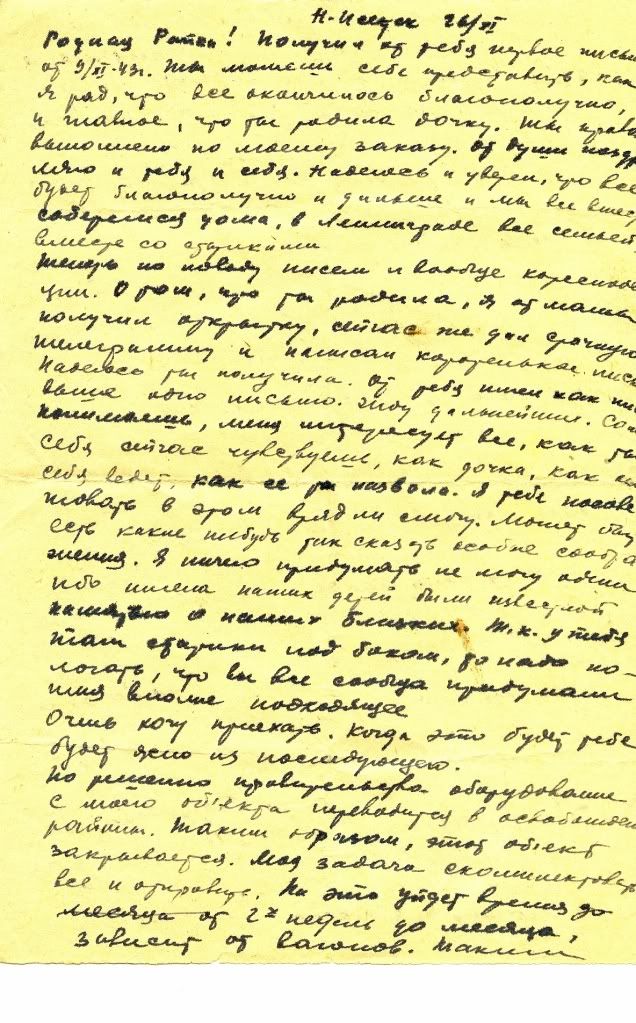 Н-Исетск 26/XI
Родная Раичка! Получил от тебя первое письмо
от 9/XI-43г. Ты можешь себе представить, как
я рад, что все окончилось благополучно,
и главное, что ты родила дочку. Ты права
выполнено по моему заказу. От души поздр
ляю и тебя и себя. Надеюсь и уверен, что все
будет благополучно и дальше и мы все вмест
соберемся дома, в Ленинграде все семьей,
вместе со стариками
Теперь по поводу писем и вообще кореспонд
ции. О том, что ты родила, я от мамы
получил открытку, сейчас же дал срочную
телеграмму и написал коротенькое пись
Надеюсь ты получила. От тебя имею как
выше одно письмо. Жду дальнейших. Сам
понимаешь, меня интересует все, как ты
себя сейчас чувствуешь, как дочка, как
себя ведет, как ее ты назвала. Я тебе посове
товать в этом врядли смогу. Может быт
есть какие нибудь так сказать особые сообра
жения. Я ничего придумать не могу
ибо имена наших детей были
о наших близких. Т.к. у тебя
там старики под боком, то надо по-
логать, что вы все сообща придумали
имя вполне подходящее
Очень хочу приехать. Когда это будет тебе
будет ясно из последующего.
По решению правительства оборудование
с моего объекта переводится в освобожден
районы. Таким образом, этот объект
закрывается. Моя задача скомплектовать
все и отправить. На это уйдет время до
месяца от 2х недель до месяца,
зависит от вагонов. Таким